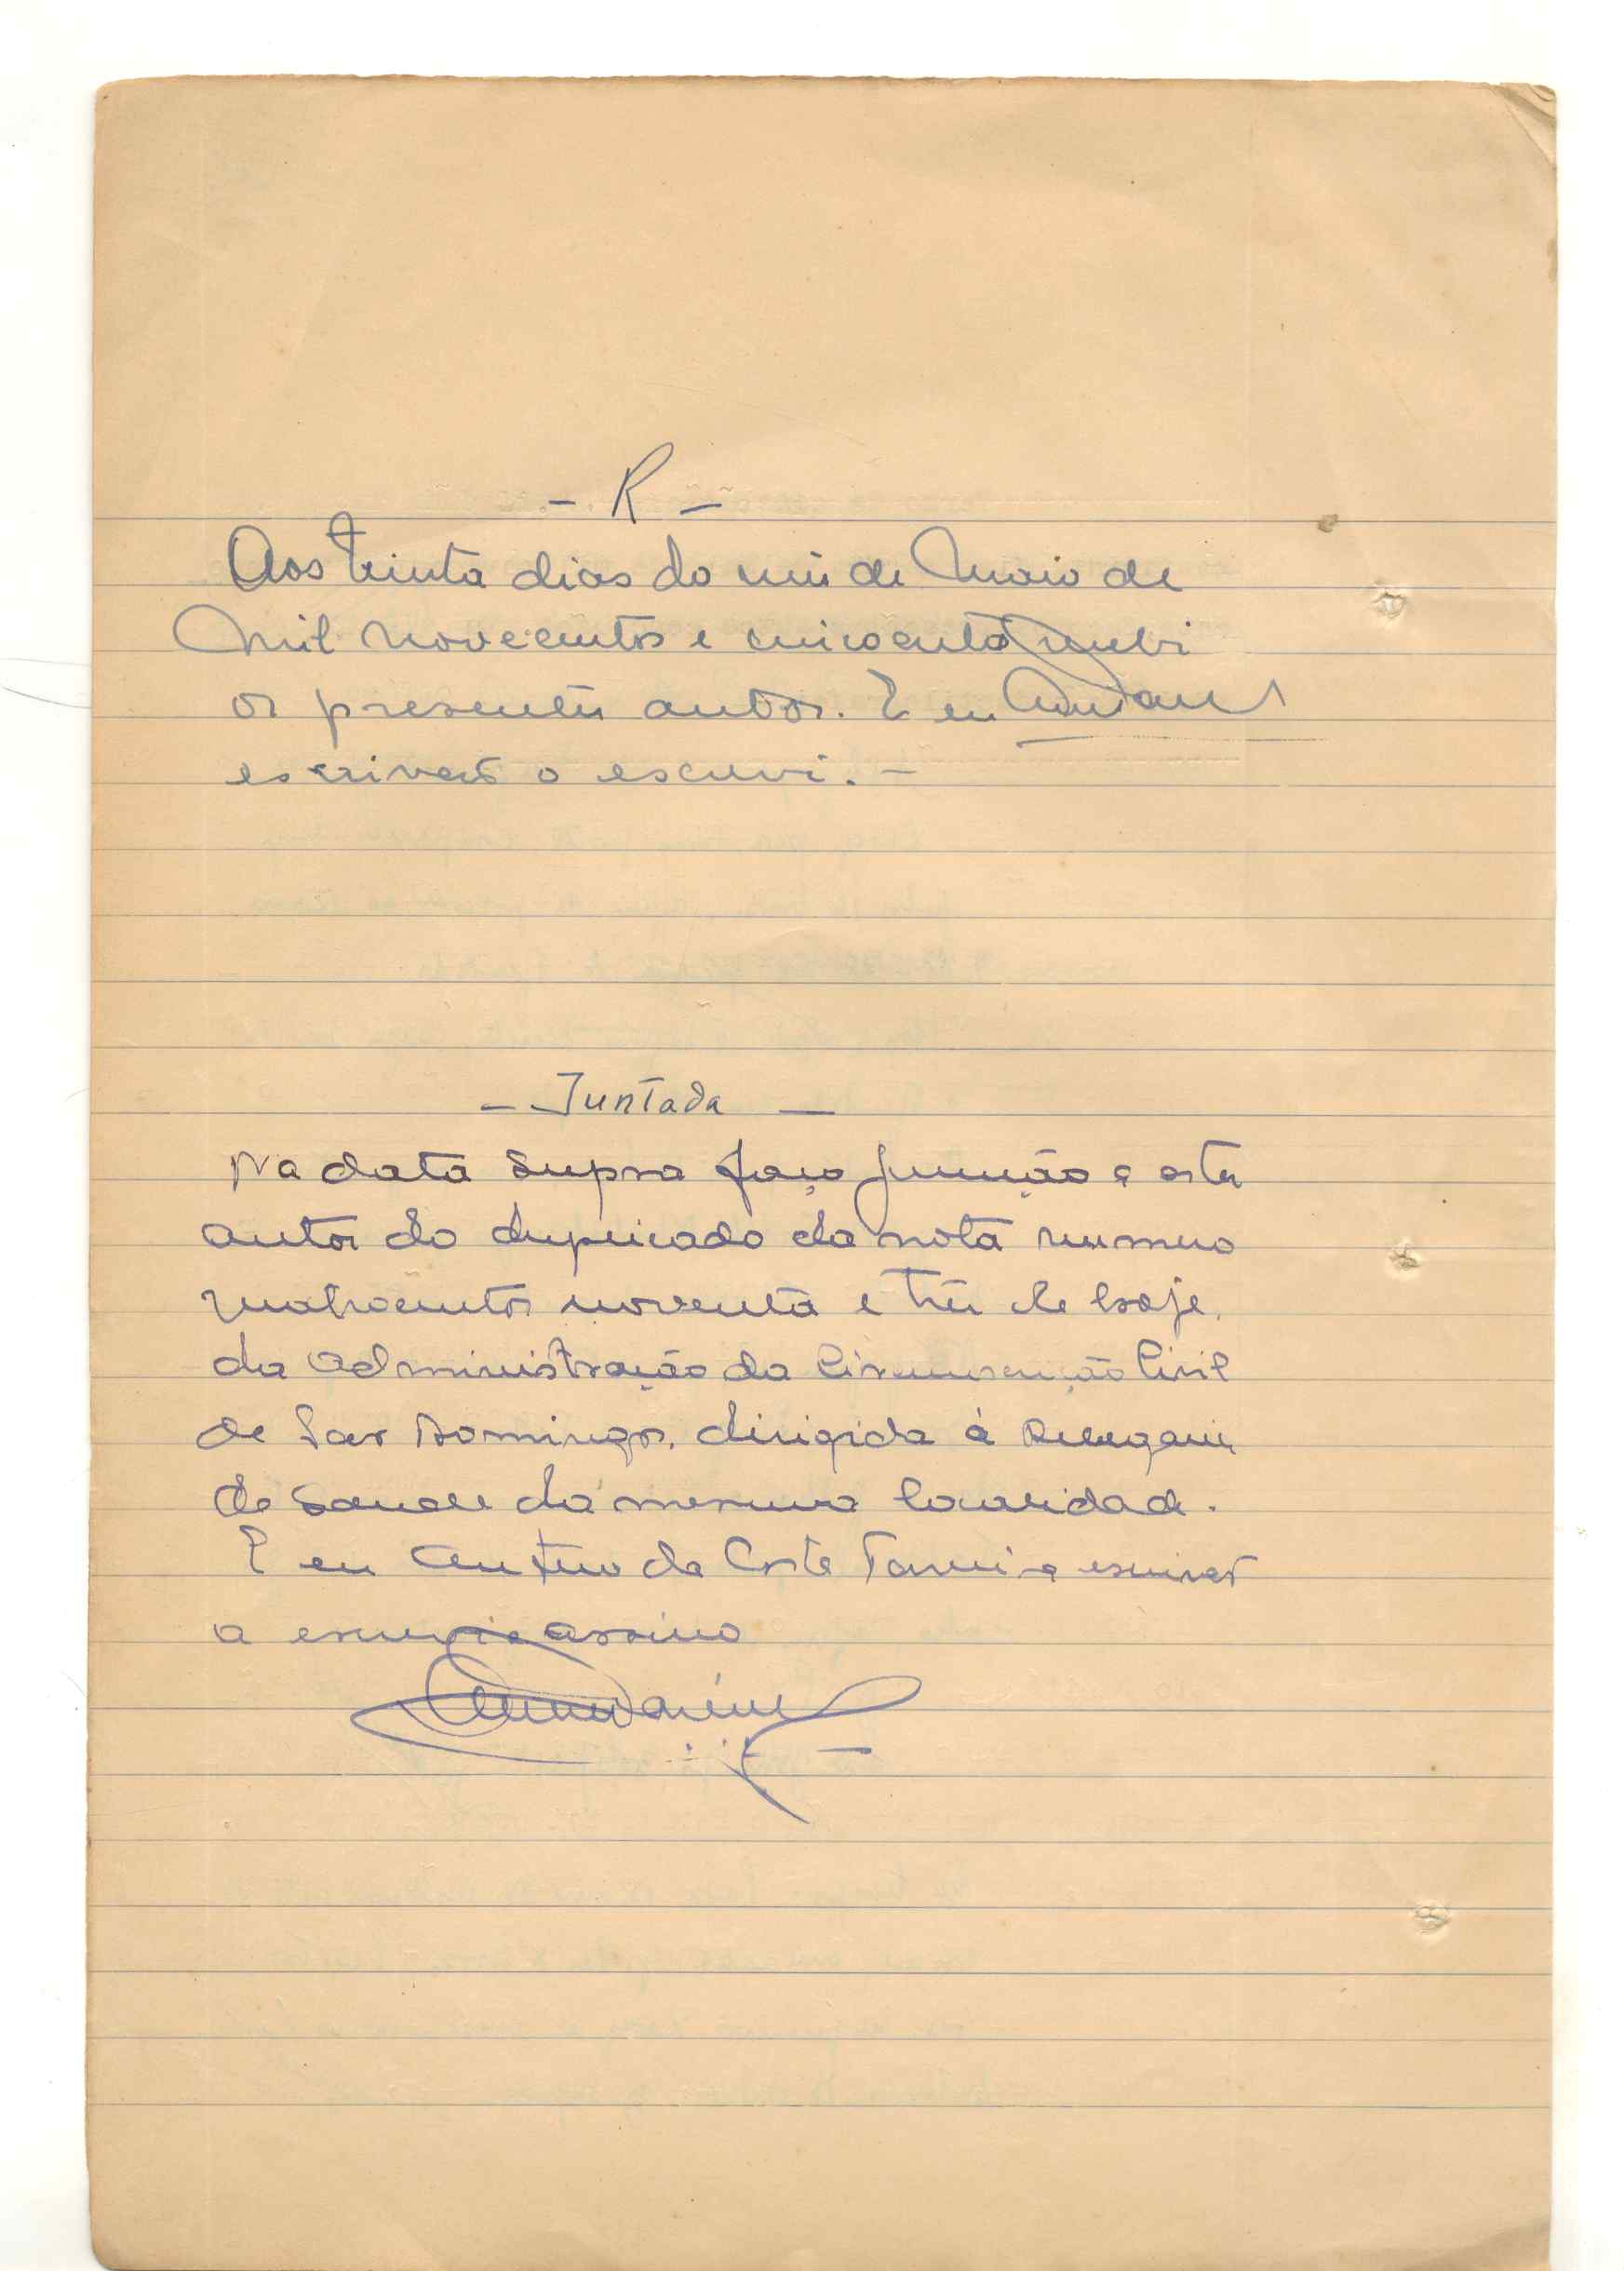 - R -
Aos trinta dias do mês de Maio de
mil novecentos e cincoenta recebi
os presentes autos. E eu
escrivão o escrevi. -
- Juntada -
Na data supra faço junção a estes
autos do duplicado da nota numero
quatrocentos noventa e três de hoje,
da Administração da Circunscrição Civil
de São Domingos, dirigida á Delegacia
de Saude da mesma localidade.
E eu da Costa escrivão
a escrevi e assino